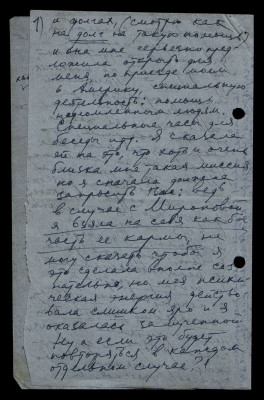 1) и долгах, (смотрю как
на долг на такую помощь)
и она мне сердечно пред-
ложила открыть для
меня, по приезде моем
в Америку, специальную
деятельность: помощь
надломленным людям.
Специальные часы для
беседы и пр. Я сказала
ей на это, что хотя и очень
близка мне такая миссия
но я сначала должна
запросить Вас: ведь
в случае с Мироновой
я взяла на себя как бы
часть ее кармы, не
могу сказать чтобы я
это сделала вполне соз-
нательно, но моя психи-
ческая энергия действо-
вала слишком ярко и я
оказалась
Ну а если это будет
повторяться в каждом
отдельном случае,?!